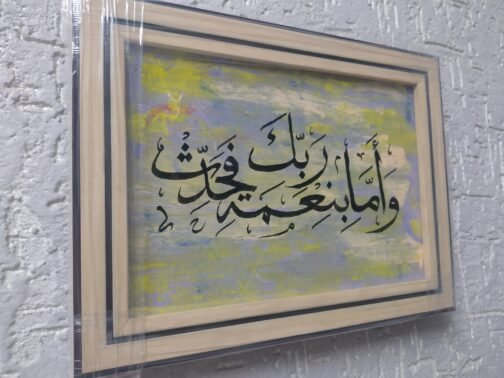 وَأَمَّا بِنِعْمَةِ رَبِّكَ فَحَدِّثْ